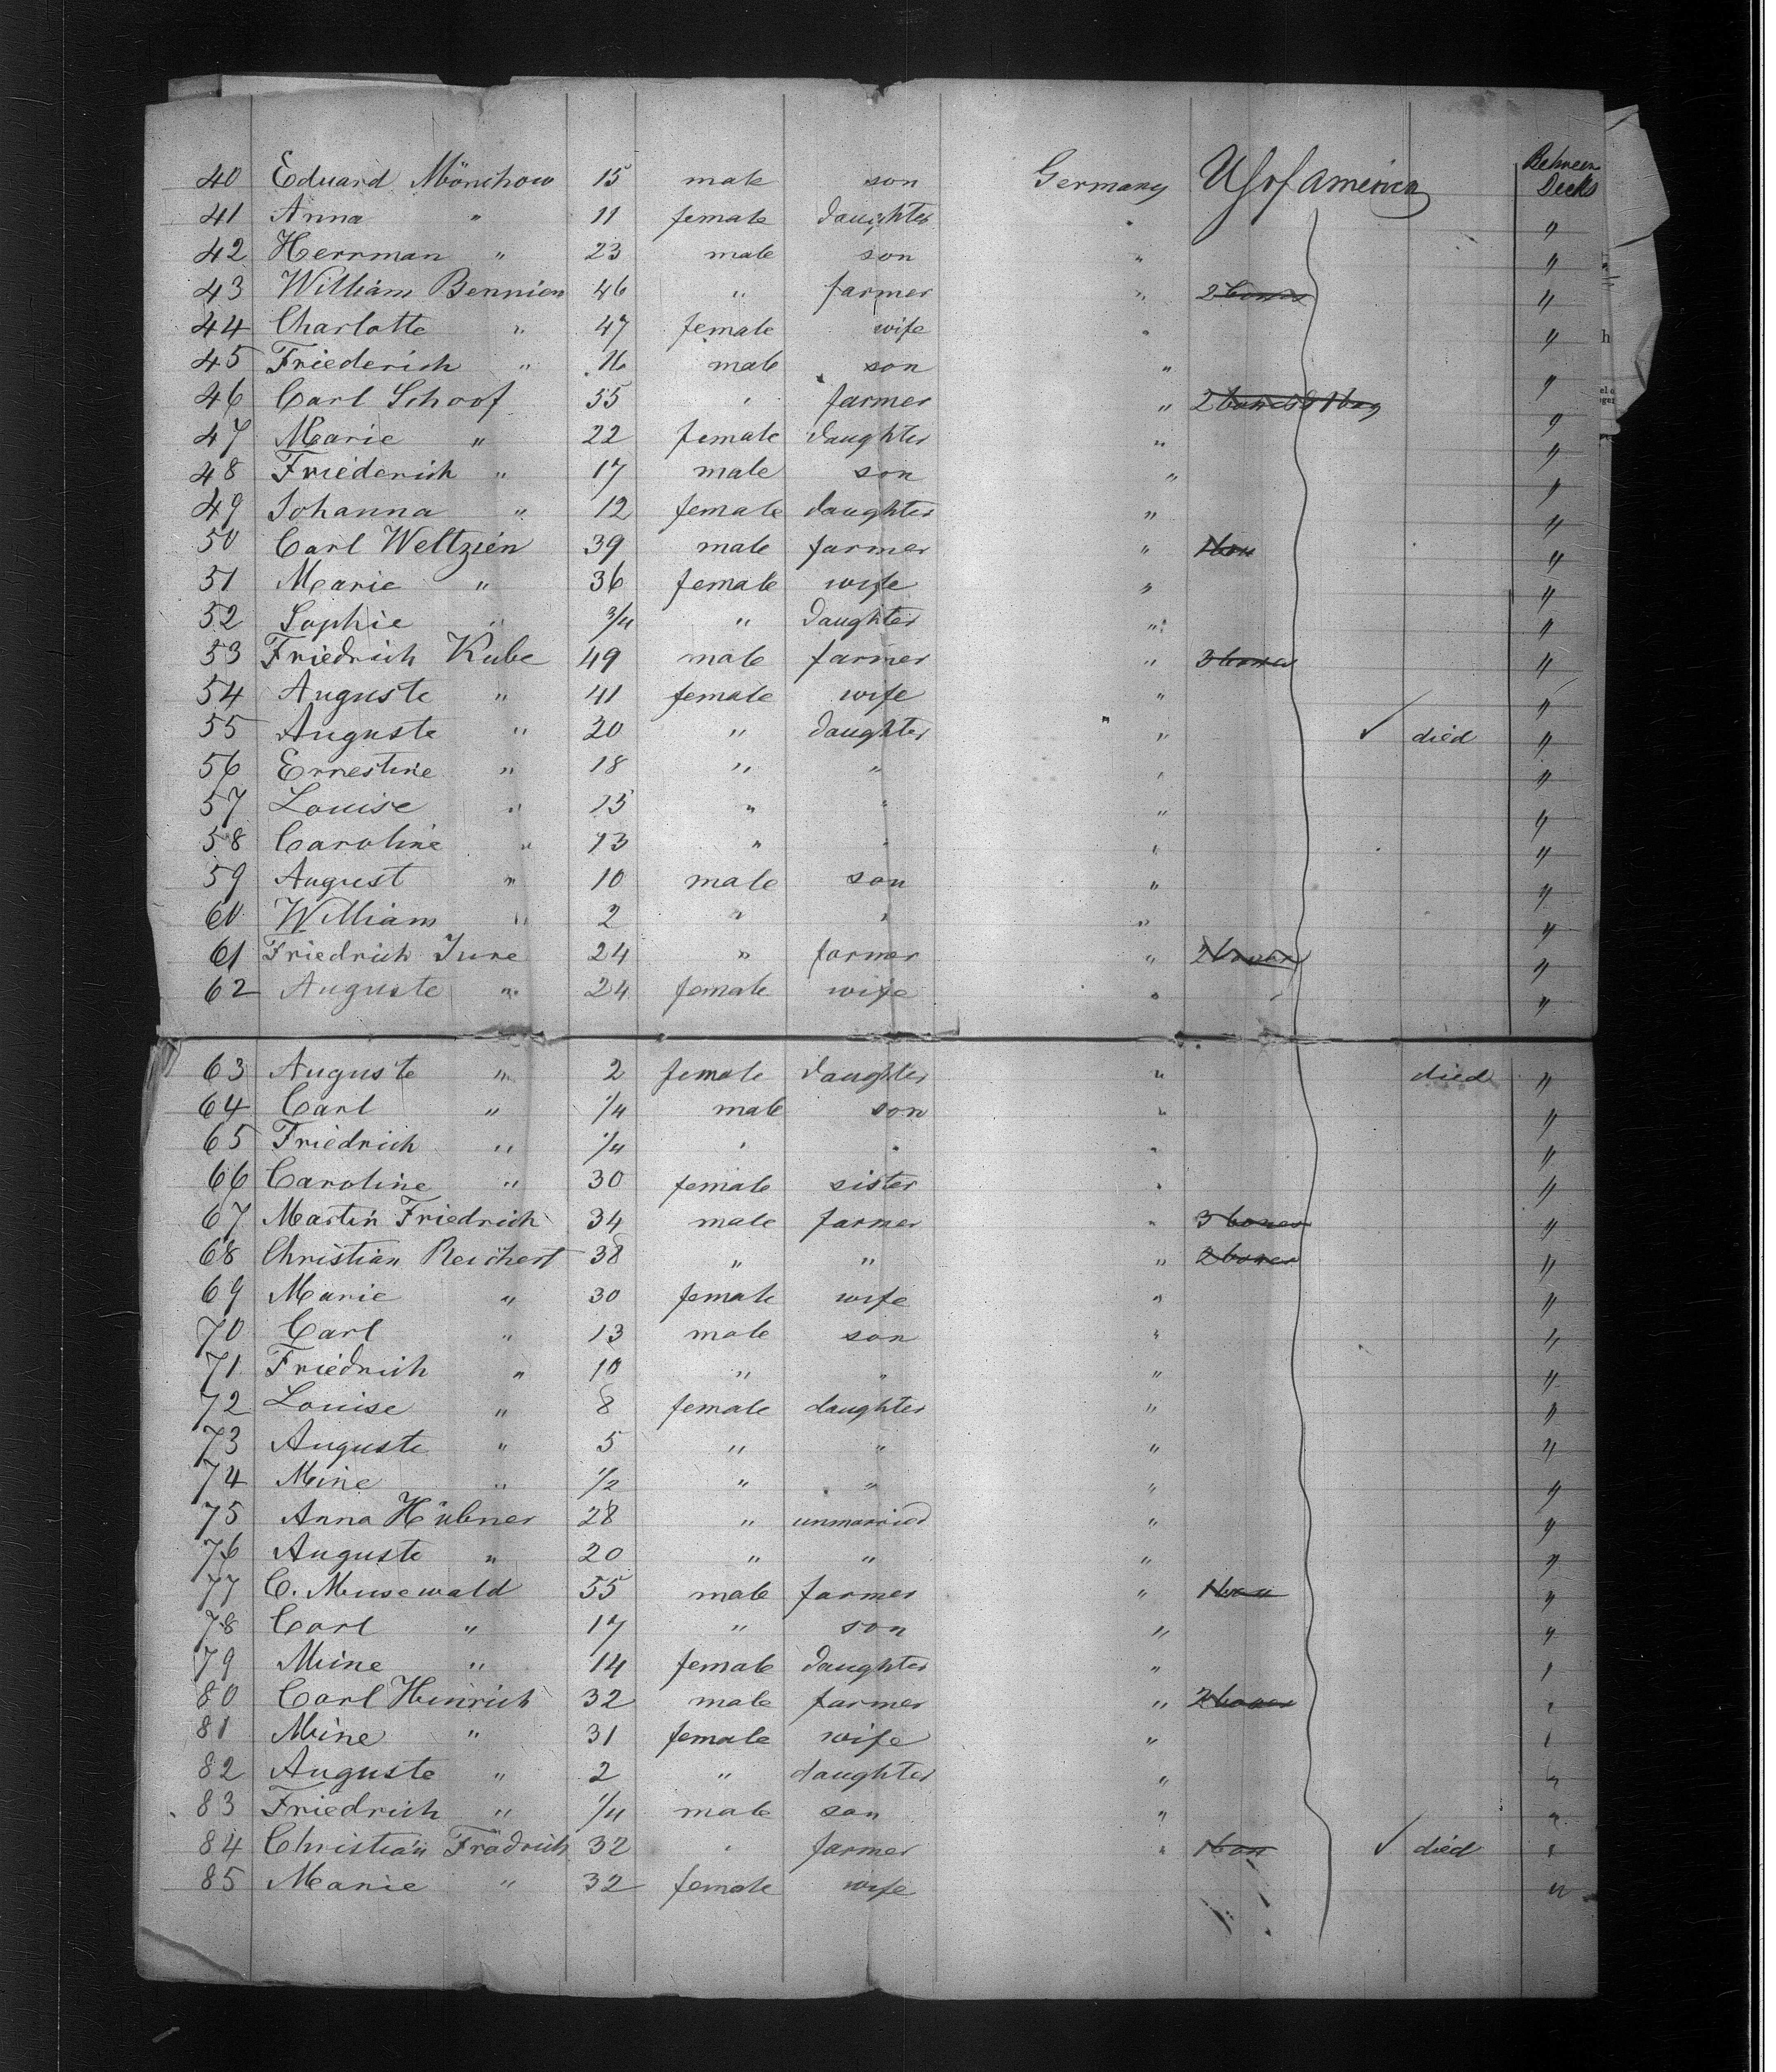 40 Eduard Mönchow 15 male son Germany US of America Between Decks
41 Anna " 11 female daughter " "
42 Herrman " 23 male son " "
43 William Bennien 46 " farmer " 2 boxes "
44 Charlotte " 47 female wife " "
45 Friederich " 16 male son " "
46 Carl Schoof 55 " farmer " 2 boxes & 1 bag "
47 Marie " 22 female daughter " "
48 Friederich " 17 male son " "
49 Johanna " 12 female daughter " "
50 Carl Weltzien 39 male farmer " 1 box "
51 Marie " 36 female wife " "
52 Sophie " 3/4 " daughter " "
53 Friedrich Kube 49 male farmer " 3 boxes "
54 Auguste " 41 female wife " "
55 Auguste " 20 " daughter " ✓ died "
56 Ernestine " 18 " " " "
57 Louise " 15 " " " "
58 Caroline " 13 " " " "
59 August " 10 male son " "
60 William " 2 " " " "
61 Friedrich June 24 " farmer " 2 boxes "
62 Auguste " 24 female wife " "
63 Auguste " 2 female daughter " died "
64 Carl " 1/4 male son " "
65 Friedrich " 1/4 " " " "
66 Caroline " 30 female sister " "
67 Martin Friedrich 34 male farmer " 3 boxes "
68 Christian Reichert 38 " " " 2 boxes "
69 Marie " 30 female wife " "
70 Carl " 13 male son " "
71 Friedrich " 10 " " " "
72 Louise " 8 female daughter " "
73 Auguste " 5 " " " "
74 Mine " 1/2 " " " "
75 Anna Hübner 28 " unmarried " "
76 Auguste " 20 " " " "
77 C. Musewald 55 male farmer " 1 box "
78 Carl " 17 " son " "
79 Mine " 14 female daughter " "
80 Carl Hinrich 32 male farmer " 2 boxes "
81 Mine " 31 female wife " "
82 Auguste " 2 " daughter " "
83 Friedrich " 1/4 male son " "
84 Christian Frädrich 32 " farmer " 1 box ✓ died "
85 Marie " 32 female wife "